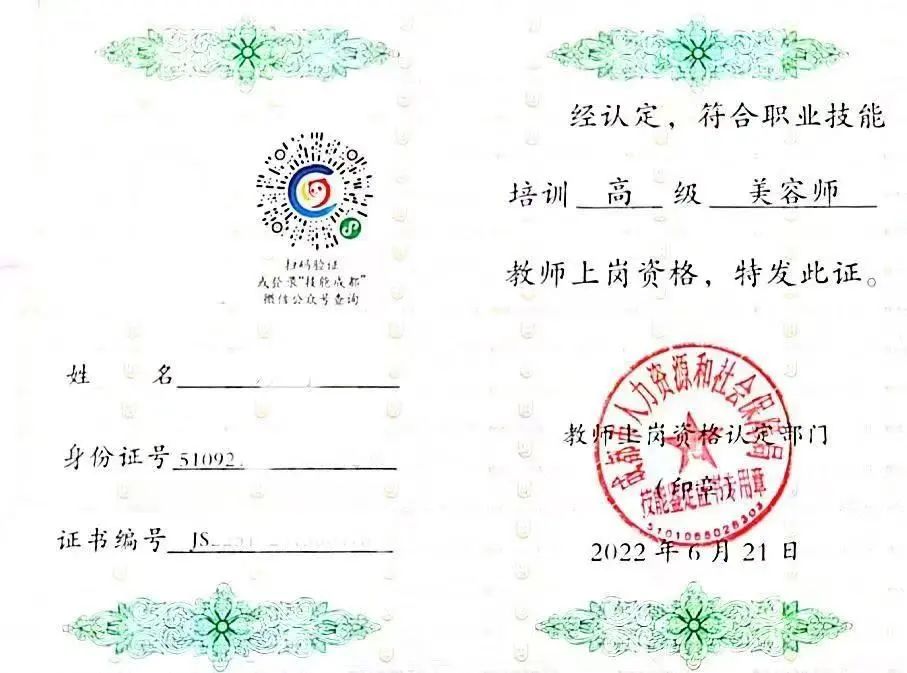 扫码验证
或登录“技能成都”
微信公众号查询
姓名
身份证号 51092
证书编号 JS
经认定，符合职业技能
培训 高 级 美容师
教师上岗资格，特发此证。
成都市人力资源和社会保障局
教师上岗资格认定部门
（印章）
技能鉴定证书专用章
5101065026303
2022 年 6 月 21 日